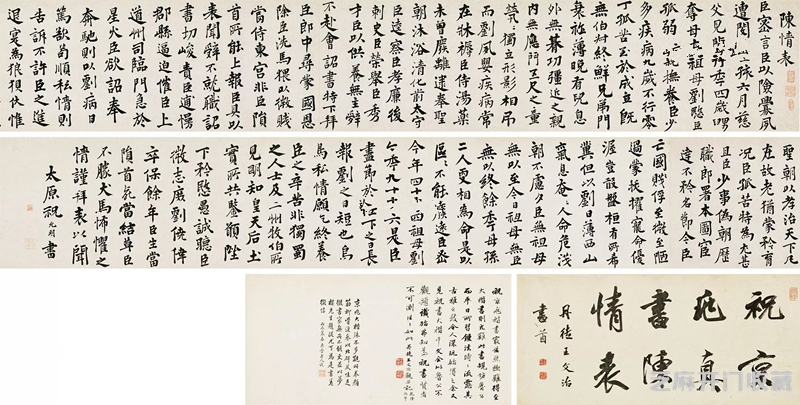 陳情表
臣密言臣以險釁夙
遭閔凶生孩六月慈
父見背行年四歲舅
奪母志祖母劉愍臣
孤弱躬親撫養臣少
多疾病九歲不行零
丁孤苦至於成立既
無伯叔終鮮兄弟門
衰祚薄晚有兒息
外無朞功彊近之親
内無應門五尺之童
煢煢獨立形影相吊
而劉夙嬰疾病常
在牀褥臣侍湯藥
未曾廢離逮奉聖
朝沐浴清化前太守
臣逵察臣孝廉後
刺史臣榮舉臣秀
才臣以供養無主辭
不赴會詔書特下拜
臣郎中尋蒙國恩
除臣洗馬猥以微賤
當侍東宮非臣隕
首所能上報臣具以
表聞辭不就職詔
書切峻責臣逋慢
郡縣逼迫催臣上
道州司臨門急於
星火臣欲詔奉
奔馳則以劉病日
篤欲苟順私情則
告訴不許臣之進
退實為狼狽伏惟
聖朝以孝治天下凡
在故老猶蒙矜育
況臣孤苦特為尤甚
且臣少事偽朝歷
職郎署本圖宦
達不矜名節今臣
亡國賤俘至微至陋
過蒙拔擢寵命優
渥豈敢盤桓有所希
冀但以劉日薄西山
氣息奄奄人命危淺
朝不慮夕臣無祖母
無以至今日祖母無臣
無以終餘年母孫
二人更相為命是以
區區不能廢遠臣密
今年四十四祖母劉
今年九十六是臣
盡節於陛下之日長
報劉之日短也烏
鳥私情願乞終養
臣之辛苦非獨蜀
之人士及二州牧伯所
見明知皇天后土
實所共鑒願陛
下矜愍愚誠聽臣
微志庶劉僥倖
卒保餘年臣生當
隕首死當結草臣
不勝犬馬怖懼之
情謹拜表以聞
太原祝允明書
祝京
兆真
書陳
情表
丹徒王文治
書首